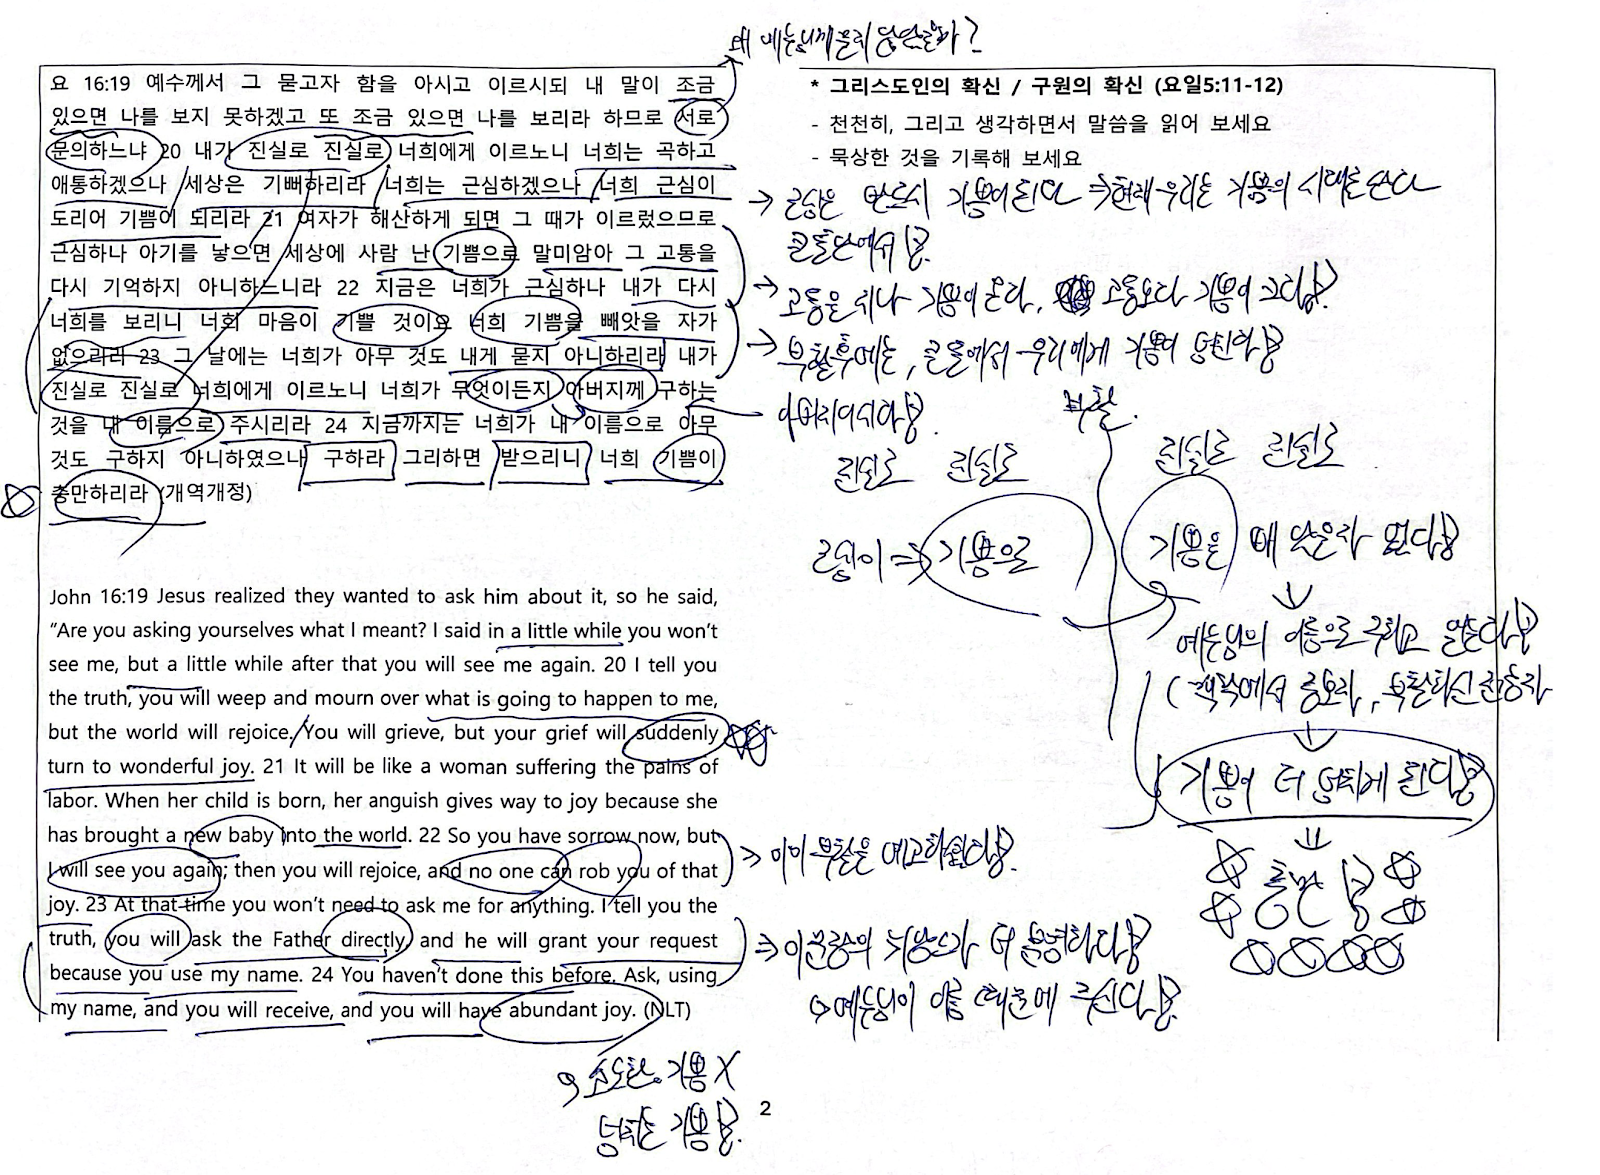 요 16:19 예수께서 그 묻고자 함을 아시고 이르시되 내 말이 조금
있으면 나를 보지 못하겠고 또 조금 있으면 나를 보리라 하므로 서로
문의하느냐 20 내가 진실로 진실로 너희에게 이르노니 너희는 곡하고
애통하겠으나 세상은 기뻐하리라 너희는 근심하겠으나 너희 근심이
도리어 기쁨이 되리라 21 여자가 해산하게 되면 그 때가 이르렀으므로
근심하나 아기를 낳으면 세상에 사람 난 기쁨으로 말미암아 그 고통을
다시 기억하지 아니하느니라 22 지금은 너희가 근심하나 내가 다시
너희를 보리니 너희 마음이 기쁠 것이요 너희 기쁨을 빼앗을 자가
없으리라 23 그 날에는 너희가 아무 것도 내게 묻지 아니하리라 내가
진실로 진실로 너희에게 이르노니 너희가 무엇이든지 아버지께 구하는
것을 내 이름으로 주시리라 24 지금까지는 너희가 내 이름으로 아무
것도 구하지 아니하였으나 구하라 그리하면 받으리니 너희 기쁨이
충만하리라 (개역개정)
John 16:19 Jesus realized they wanted to ask him about it, so he said,
“Are you asking yourselves what I meant? I said in a little while you won’t
see me, but a little while after that you will see me again. 20 I tell you
the truth, you will weep and mourn over what is going to happen to me,
but the world will rejoice. You will grieve, but your grief will suddenly
turn to wonderful joy. 21 It will be like a woman suffering the pains of
labor. When her child is born, her anguish gives way to joy because she
has brought a new baby into the world. 22 So you have sorrow now, but
I will see you again; then you will rejoice, and no one can rob you of that
joy. 23 At that time you won’t need to ask me for anything. I tell you the
truth, you will ask the Father directly, and he will grant your request
because you use my name. 24 You haven’t done this before. Ask, using
my name, and you will receive, and you will have abundant joy. (NLT)
기쁨 X
기쁨
* 그리스도인의 확신 / 구원의 확신 (요일5:11-12)
- 천천히, 그리고 생각하면서 말씀을 읽어 보세요
- 묵상한 것을 기록해 보세요
→ 근심은 반드시 기쁨이 된다 ⇒ 현재 우리는 기쁨의 시대를 산다
→ 고통보다 기쁨이 크다
→ 부활후에는, 우리에게 기쁨이
부활
진실로 진실로
진실로 진실로
근심이 ⇒ 기쁨으로
기쁨을 빼앗을자 없다
↓
예수님의 이름으로 구하고
↓
기쁨이 더 넘치게 된다
↓
충만
→ 이미 부활을 예고하셨다
⇒ 이 더 분명하다
예수님이 이름 때문에 주신다
2